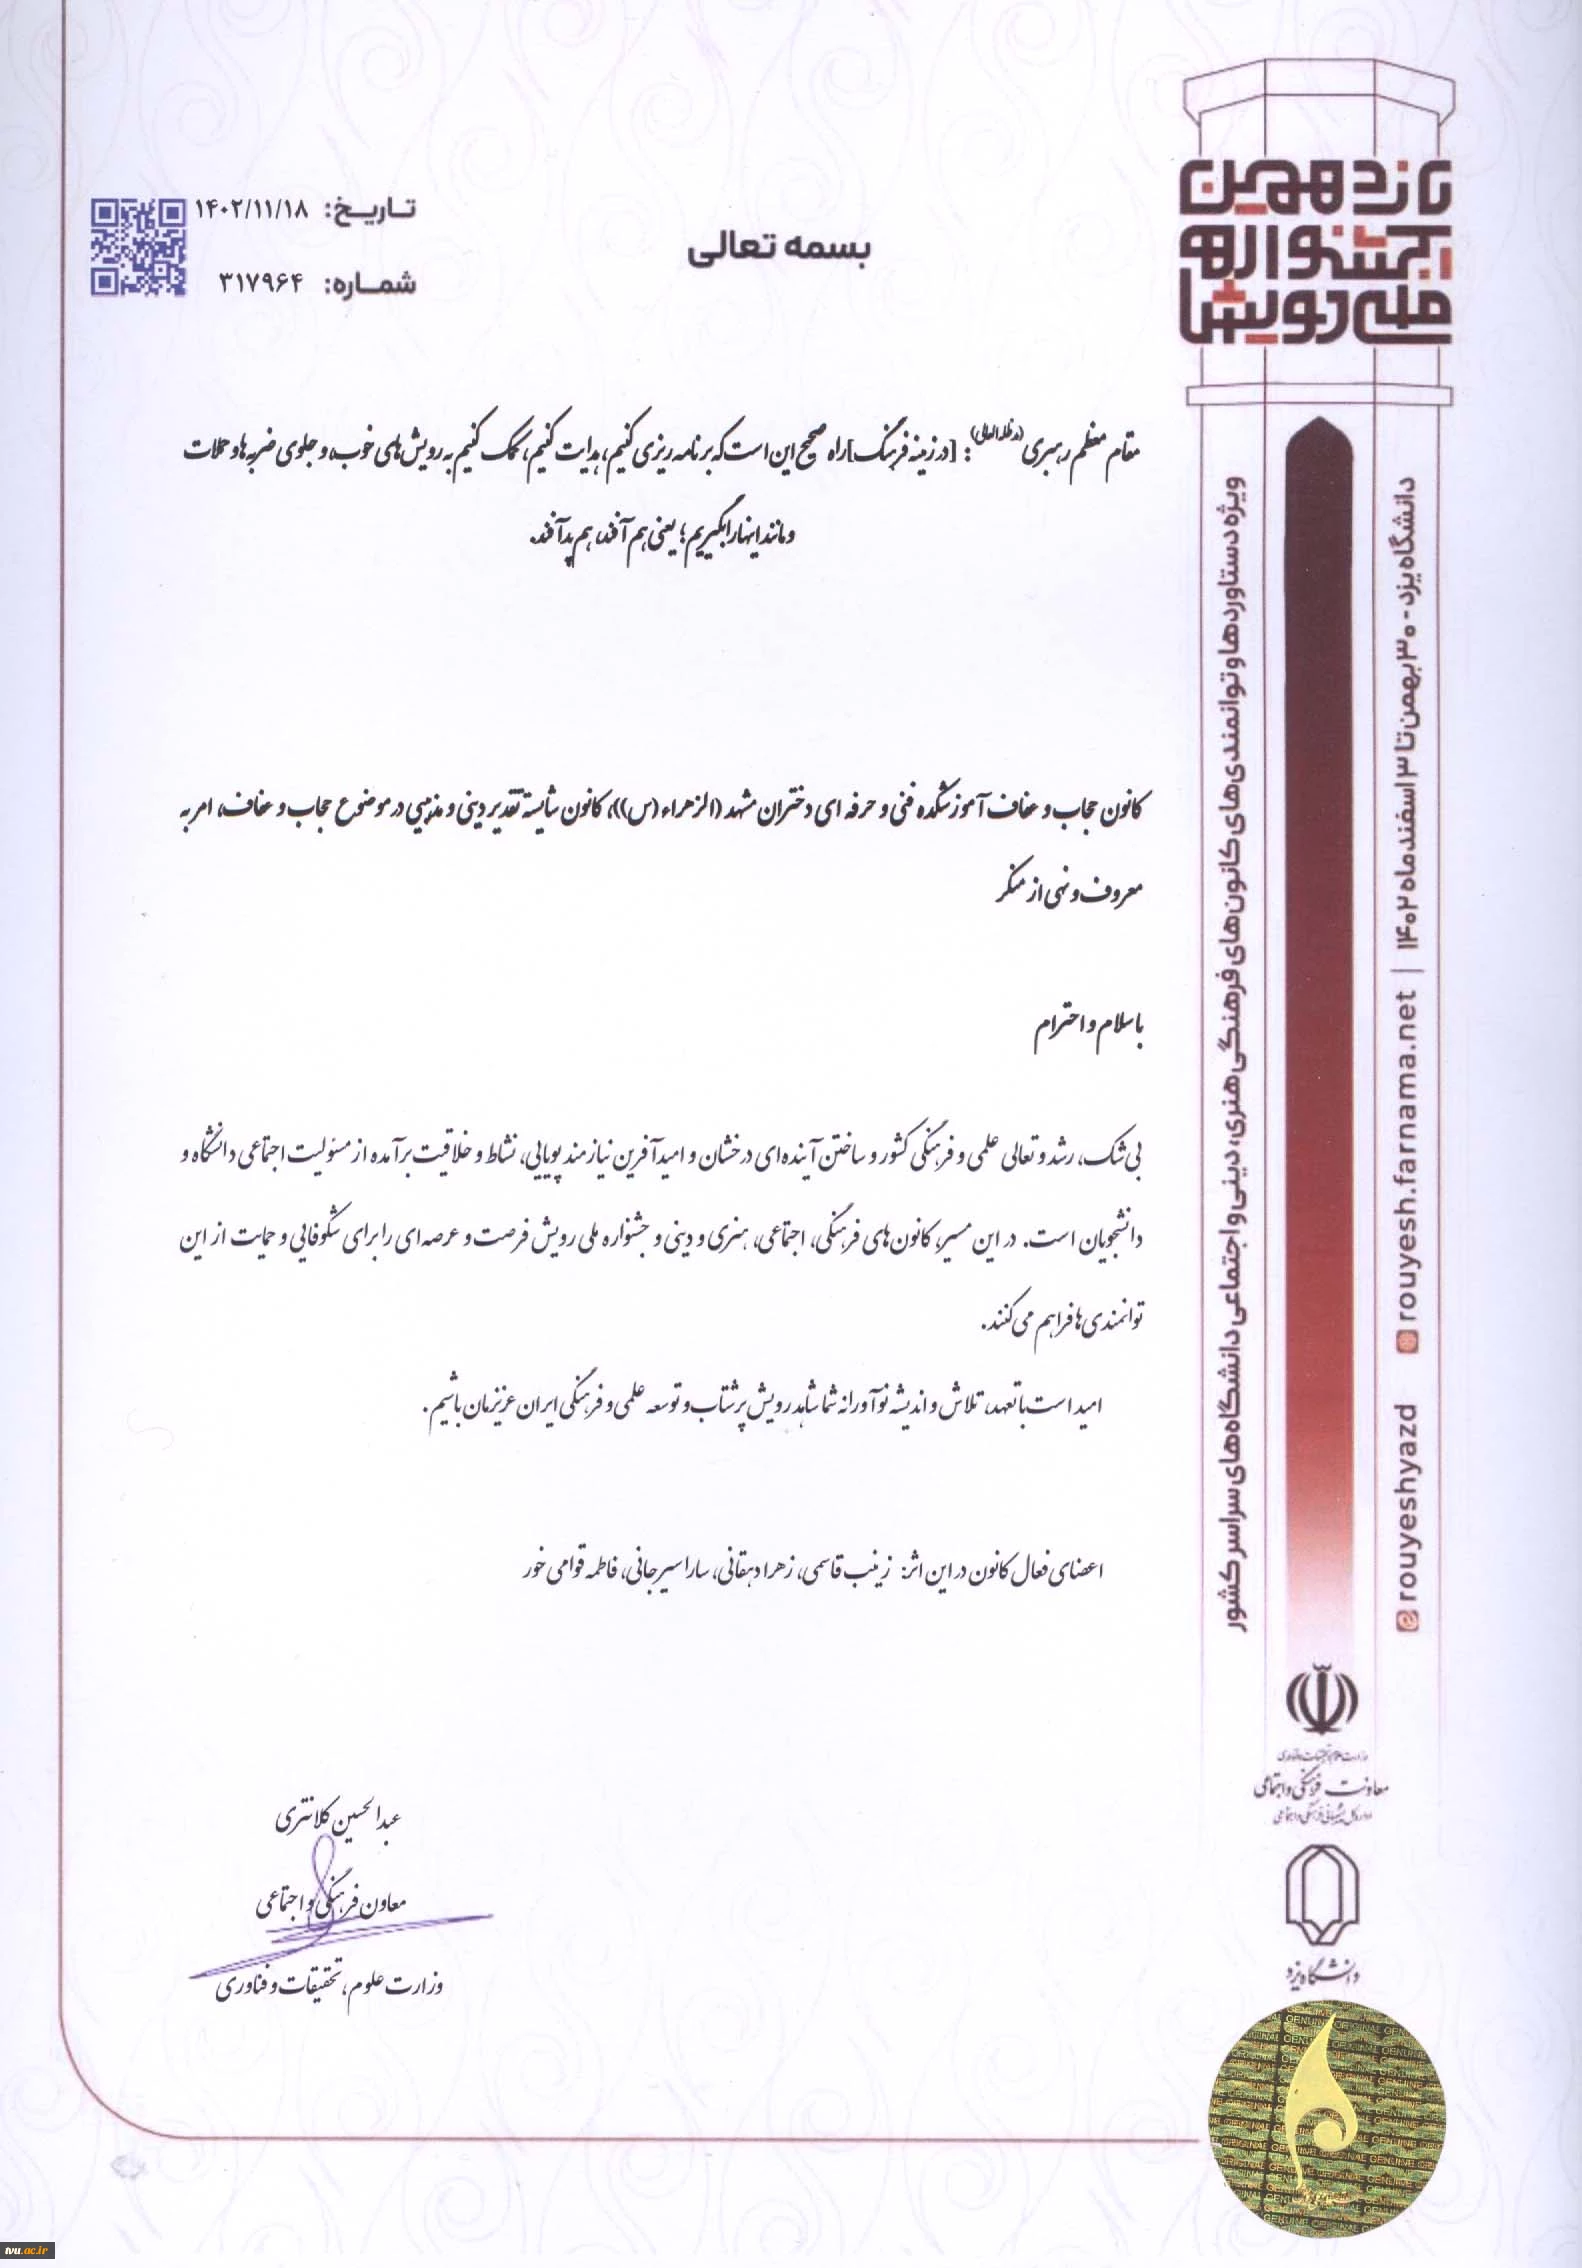 یازدهمین
جشنواره
ملی رویش
بسمه تعالی
تاریخ: ۱۴۰۲/۱۱/۱۸
شماره: ۳۱۷۹۶۴
مقام معظم رهبری (مدظله العالی): [در زمینه فرهنگ] راه صحیح این است که برنامه ریزی کنیم، هدایت کنیم، کمک کنیم به رویش‌های خوب، و جلوی ضربه ها و حملات
و مانند اینها را بگیریم؛ یعنی هم آفند، هم پدآفند.
کانون حجاب و عفاف آموزشکده فنی و حرفه ای دختران مشهد (الزهراء(س))، کانون شایسته تقدیر دینی و مذهبی در موضوع حجاب و عفاف، امر به
معروف و نهی از منکر
با سلام و احترام
بی شک، رشد و تعالی علمی و فرهنگی کشور و ساختن آینده‌ای درخشان و امیدآفرین نیازمند پویایی، نشاط و خلاقیت برآمده از مسئولیت اجتماعی دانشگاه و
دانشجویان است. در این مسیر، کانون‌های فرهنگی، اجتماعی، هنری و دینی و جشنواره ملی رویش فرصت و عرصه ای را برای شکوفایی و حمایت از این
توانمندی ها فراهم می‌کنند.
امید است با تعهد، تلاش و اندیشه نوآورانه شما شاهد رویش پرشتاب و توسعه علمی و فرهنگی ایران عزیزمان باشیم.
اعضای فعال کانون در این اثر: زینب قاسمی، زهرا دهقانی، سارا سیرجانی، فاطمه قوامی خور
عبدالحسین کلانتری
معاون فرهنگی و اجتماعی
وزارت علوم، تحقیقات و فناوری
ویژه دستاوردها و توانمندی‌های کانون‌های فرهنگی هنری، دینی و اجتماعی دانشگاه‌های سراسر کشور
دانشگاه یزد - ۳۰ بهمن تا ۳ اسفند ماه ۱۴۰۲ | rouyesh.farnama.net
rouyeshyazd
وزارت علوم، تحقیقات و فناوری
معاونت فرهنگی و اجتماعی
دانشگاه یزد
GENUINE ORIGINAL
tvu.ac.ir